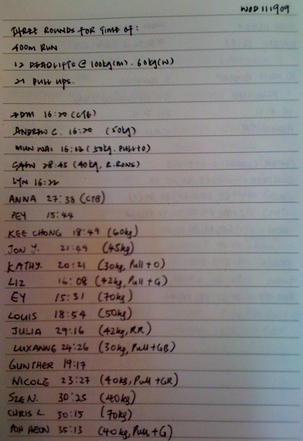 WOD 111909
THREE ROUNDS FOR TIME OF:
400M RUN
12 DEADLIFTS @ 100kg(M). 60kg(W)
21 PULL UPS.
16:20 (CTB)
ANDREW C. 16:20 (50kg)
MUN WAI (50kg. PULL+O)
28:45 (40kg, R.ROWS)
LYN 16:22
ANNA 27:38 (CTB)
PEY 15:44
KEE CHONG 18:49 (60kg)
JON Y. 21:49 (45kg)
KATHY. 20:21 (30kg, Pull+O)
LIZ 16:08 (42kg, Pull+G)
EY 15:31 (70kg)
LOUIS 18:54 (50kg)
JULIA 29:16 (42kg, R.R)
LUXANNE 24:26 (30kg, Pull+GB)
GUNTHER 19:17
NICOLE 23:27 (40kg, Pull+GR)
SZE N. 30:25 (40kg)
CHRIS L 30:15 (70kg)
POH HEON 35:13 (40kg, Pull+G)